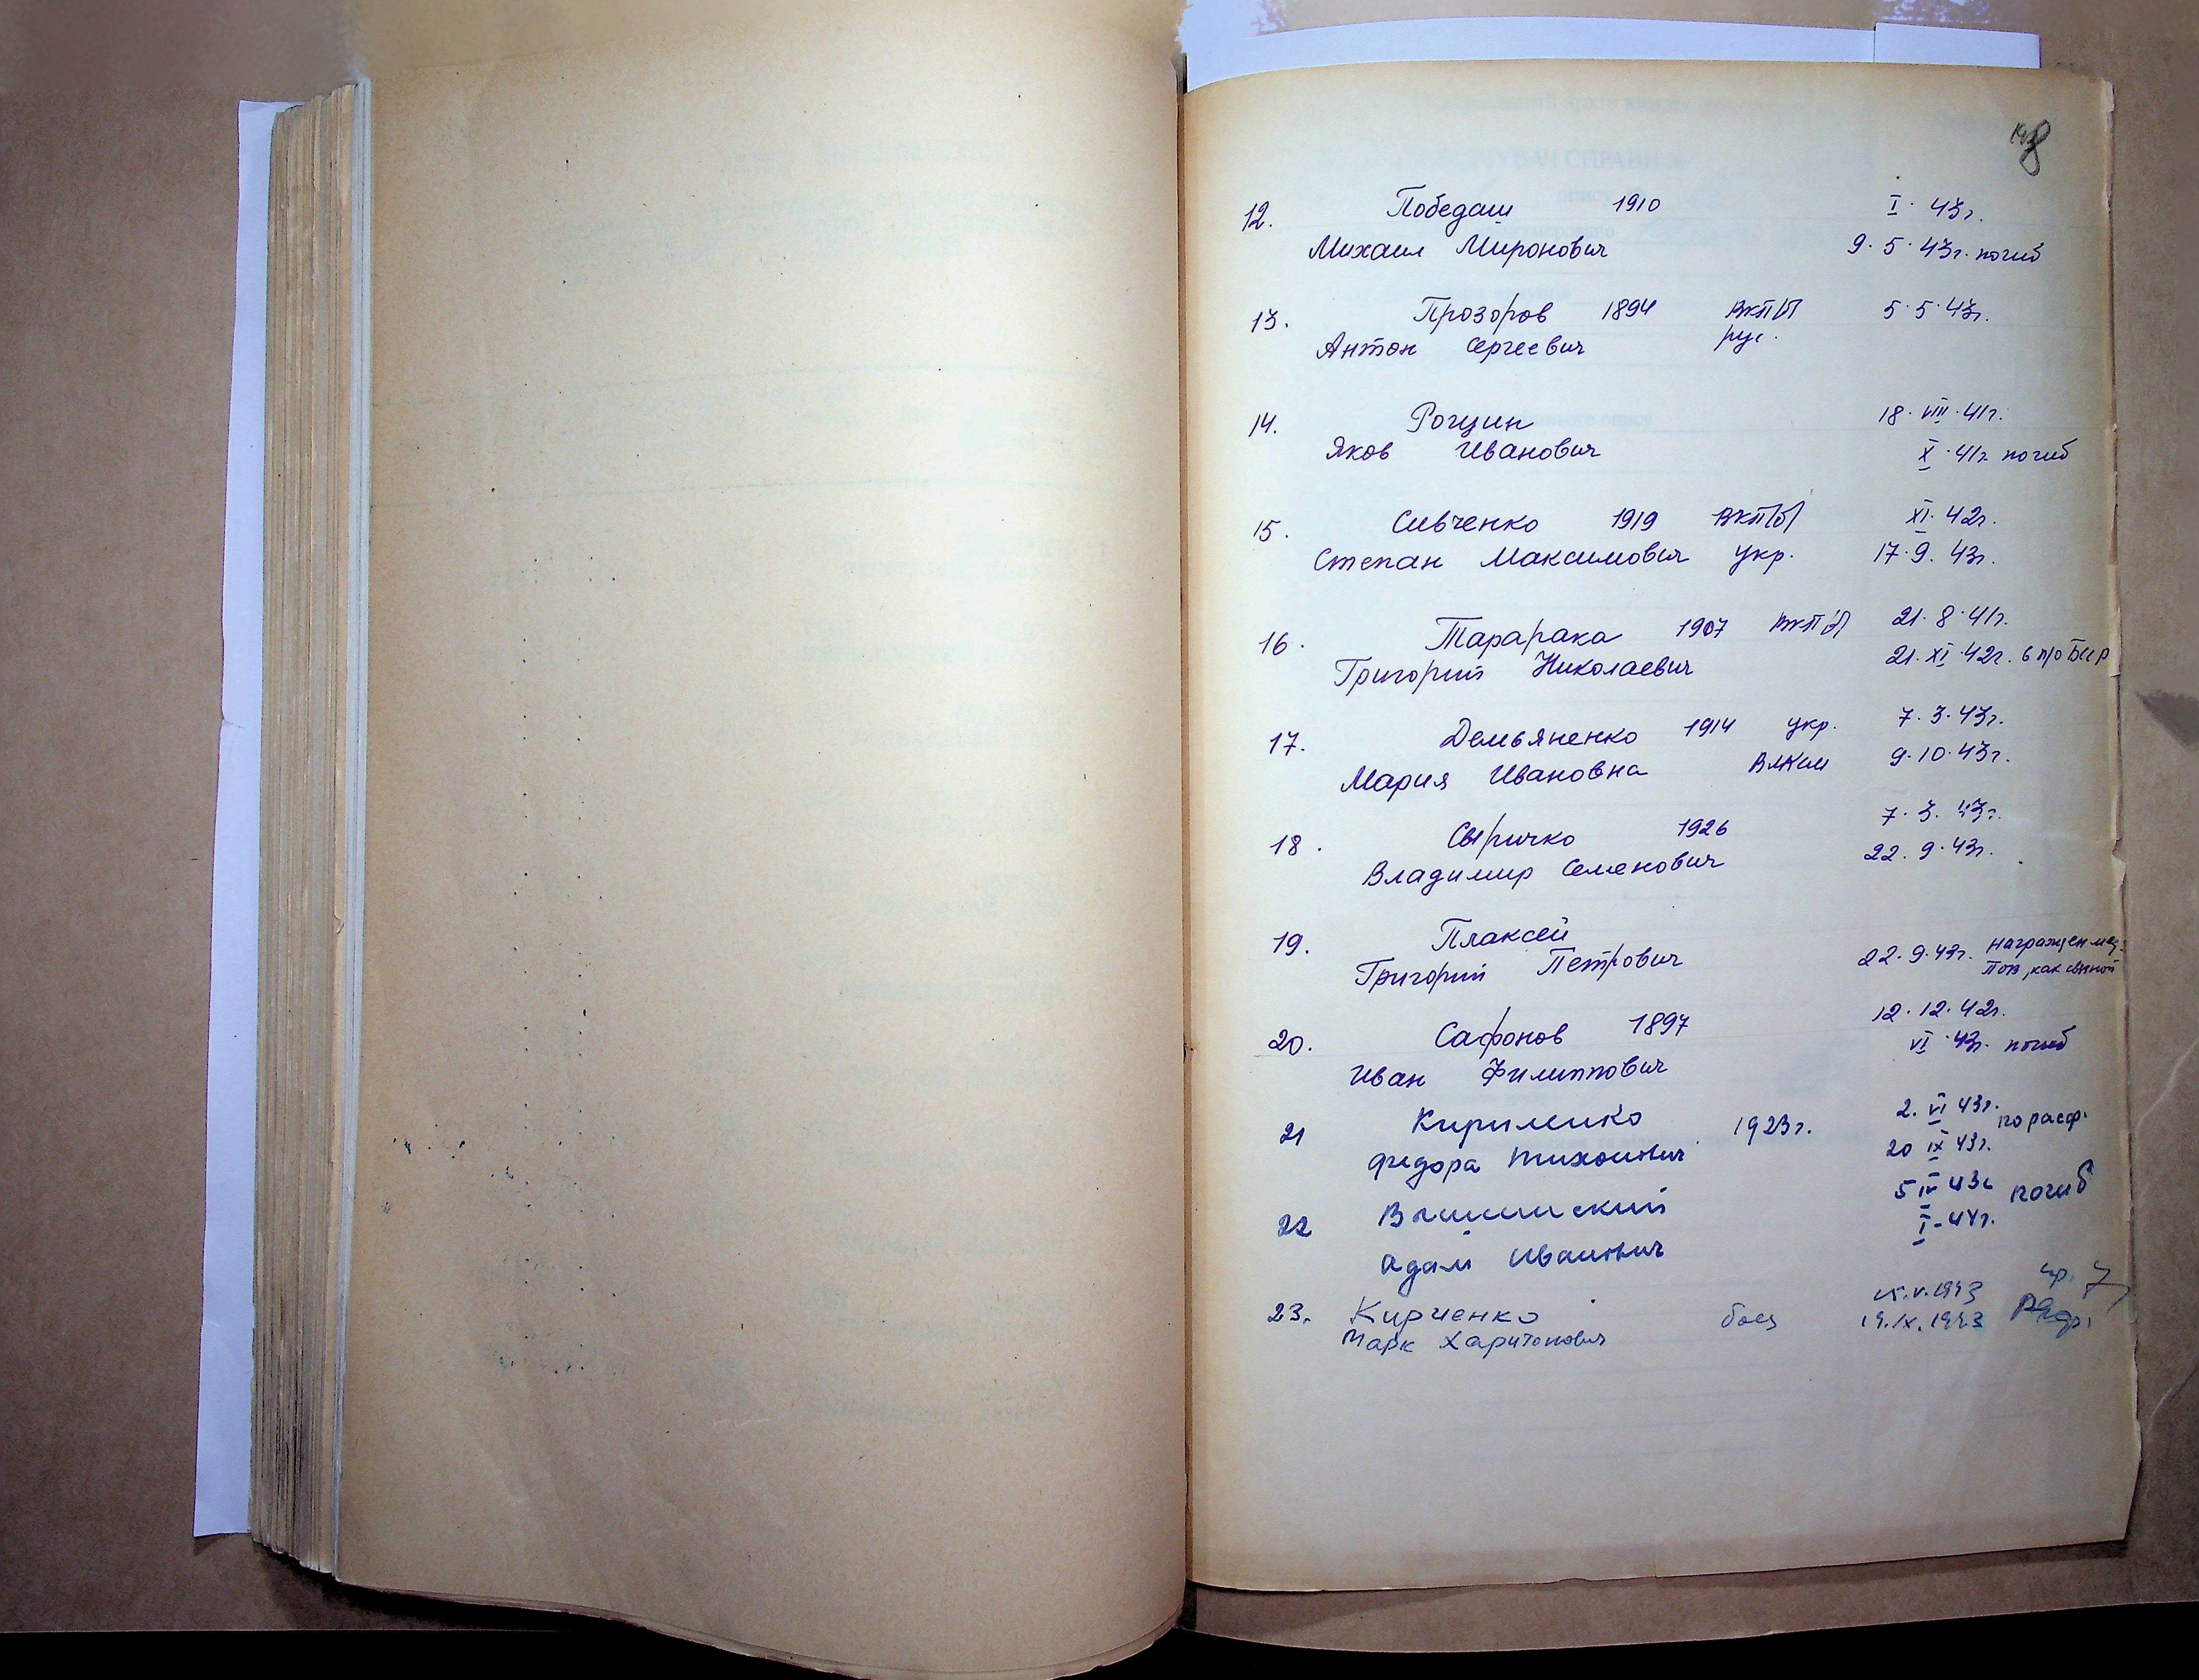 12. Победаш 1910 I. 43г.
Михаил Миронович 9.5.43г. погиб
13. Прозоров 1894 ВКП/б/ 5.5.43г.
Антон Сергеевич рус.
14. Рощин 18.VIII.41г.
Яков Иванович X.41г. погиб
15. Сивченко 1919 ВКП/б/ XI.42г.
Степан Максимович укр. 17.9.43г.
16. Тарарака 1907 ВКП/б/ 21.8.41г.
Григорий Николаевич 21.XI.42г. в
17. Демьяненко 1914 укр. 7.3.43г.
Мария Ивановна ВЛКСМ 9.10.43г.
18. Сыричко 1926 7.3.43г.
Владимир Семенович 22.9.43г.
19. Плаксей
Григорий Петрович 22.9.43г. Награжден мед.
как связной
20. Сафонов 1897 12.12.42г.
Иван Филиппович VI.43г. погиб
21 Кириленко 1923г. 2.VI 43г. по расф.
Федора Тихонович 20 IX 43г.
22 Вышинский 5 IV 43г. погиб
Адам Иванович I-44г.
23. Кириенко боец 15.V.1943
Марк Харитонович 19.IX.1943